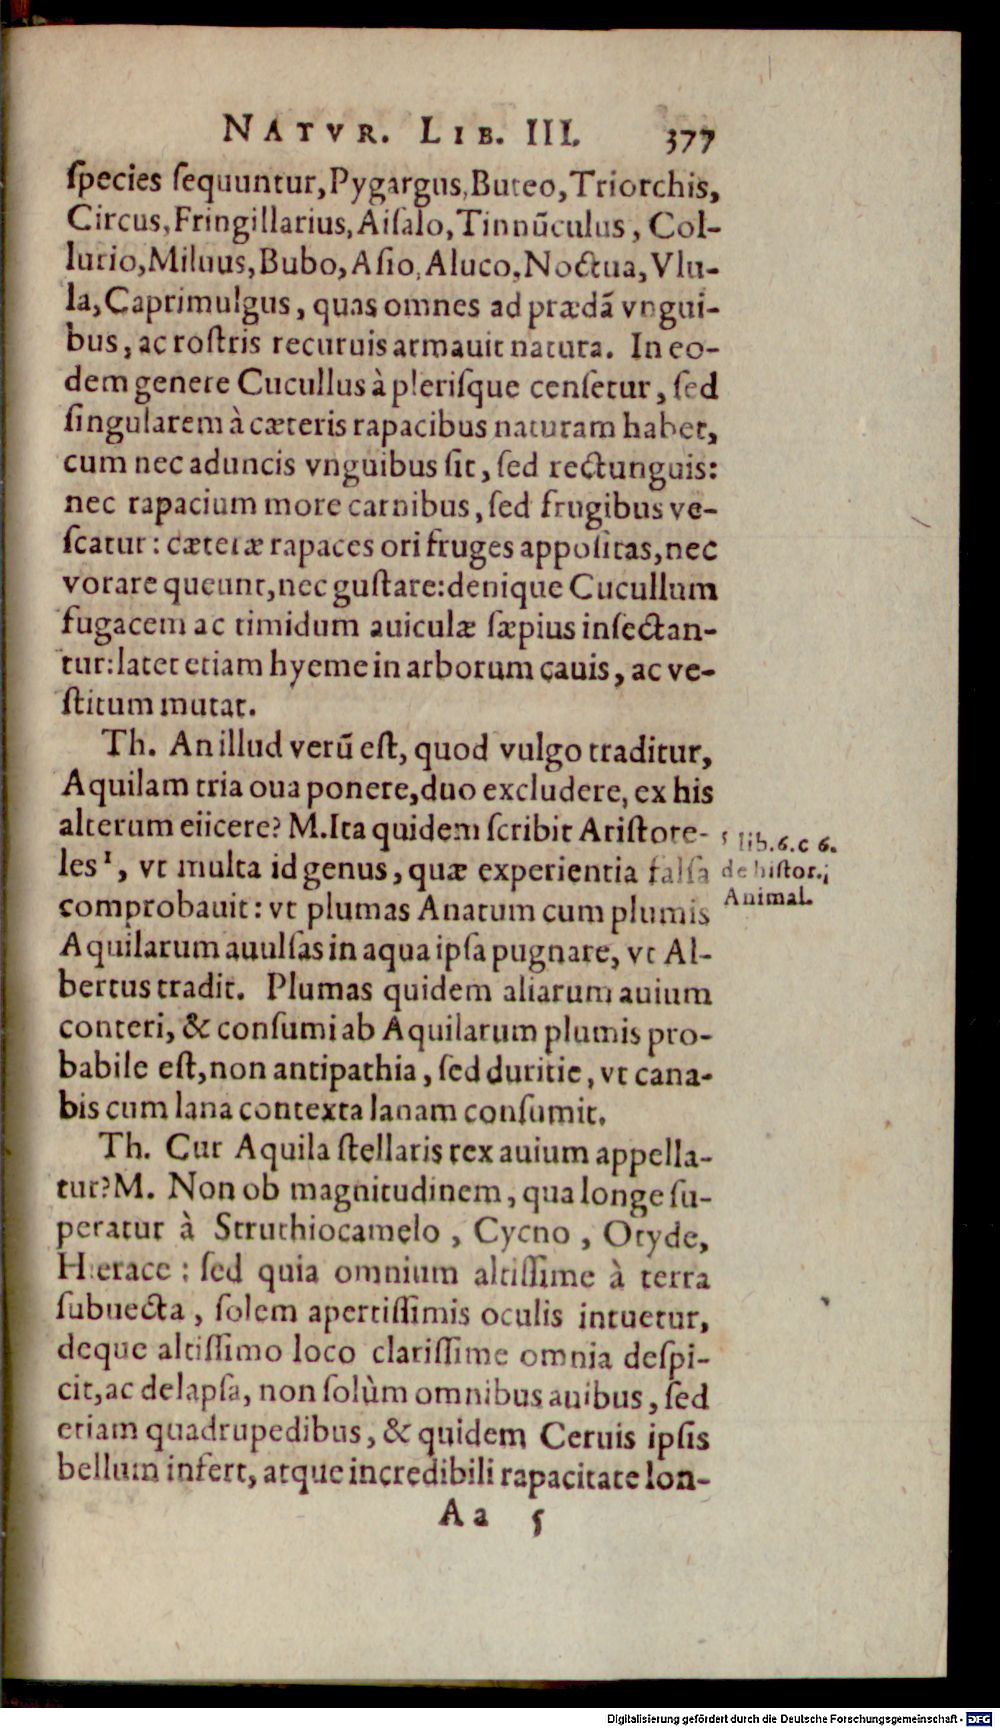 NATVR. LIB. III. 377
ſpecies ſequuntur, Pygargus, Buteo, Triorchis,
Circus, Fringillarius, Aiſalo, Tinnũculus, Col-
lurio, Miluus, Bubo, Aſio, Aluco, Noctua, Vlu-
la, Caprimulgus, quas omnes ad prædã vngui-
bus, ac roſtris recuruis armauit natura. In eo-
dem genere Cucullus à pleriſque cenſetur, ſed
ſingularem à cæteris rapacibus naturam habet,
cum nec aduncis vnguibus ſit, ſed rectunguis:
nec rapacium more carnibus, ſed frugibus ve-
ſcatur: cæteræ rapaces ori fruges appoſitas, nec
vorare queunt, nec guſtare: denique Cucullum
fugacem ac timidum auiculæ ſæpius inſectan-
tur: latet etiam hyeme in arborum cauis, ac ve-
ſtitum mutat.
Th. An illud verũ eſt, quod vulgo traditur,
Aquilam tria oua ponere, duo excludere, ex his
alterum eiicere? M. Ita quidem ſcribit Ariſtote-
les¹, vt multa id genus, quæ experientia falſa
comprobauit: vt plumas Anatum cum plumis
Aquilarum auulſas in aqua ipſa pugnare, vt Al-
bertus tradit. Plumas quidem aliarum auium
conteri, & conſumi ab Aquilarum plumis pro-
babile eſt, non antipathia, ſed duritie, vt cana-
bis cum lana contexta lanam conſumit.
Th. Cur Aquila ſtellaris rex auium appella-
tur? M. Non ob magnitudinem, qua longe ſu-
peratur à Struthiocamelo, Cycno, Otyde,
Hierace: ſed quia omnium altiſſime à terra
ſubuecta, ſolem apertiſſimis oculis intuetur,
deque altiſſimo loco clariſſime omnia deſpi-
cit, ac delapſa, non ſolùm omnibus auibus, ſed
etiam quadrupedibus, & quidem Ceruis ipſis
bellum infert, atque incredibili rapacitate lon-
Aa 5
lib. 6. c 6.
de hiſtor.
Animal.
Digitalisierung gefördert durch die Deutsche Forschungsgemeinschaft - DFG